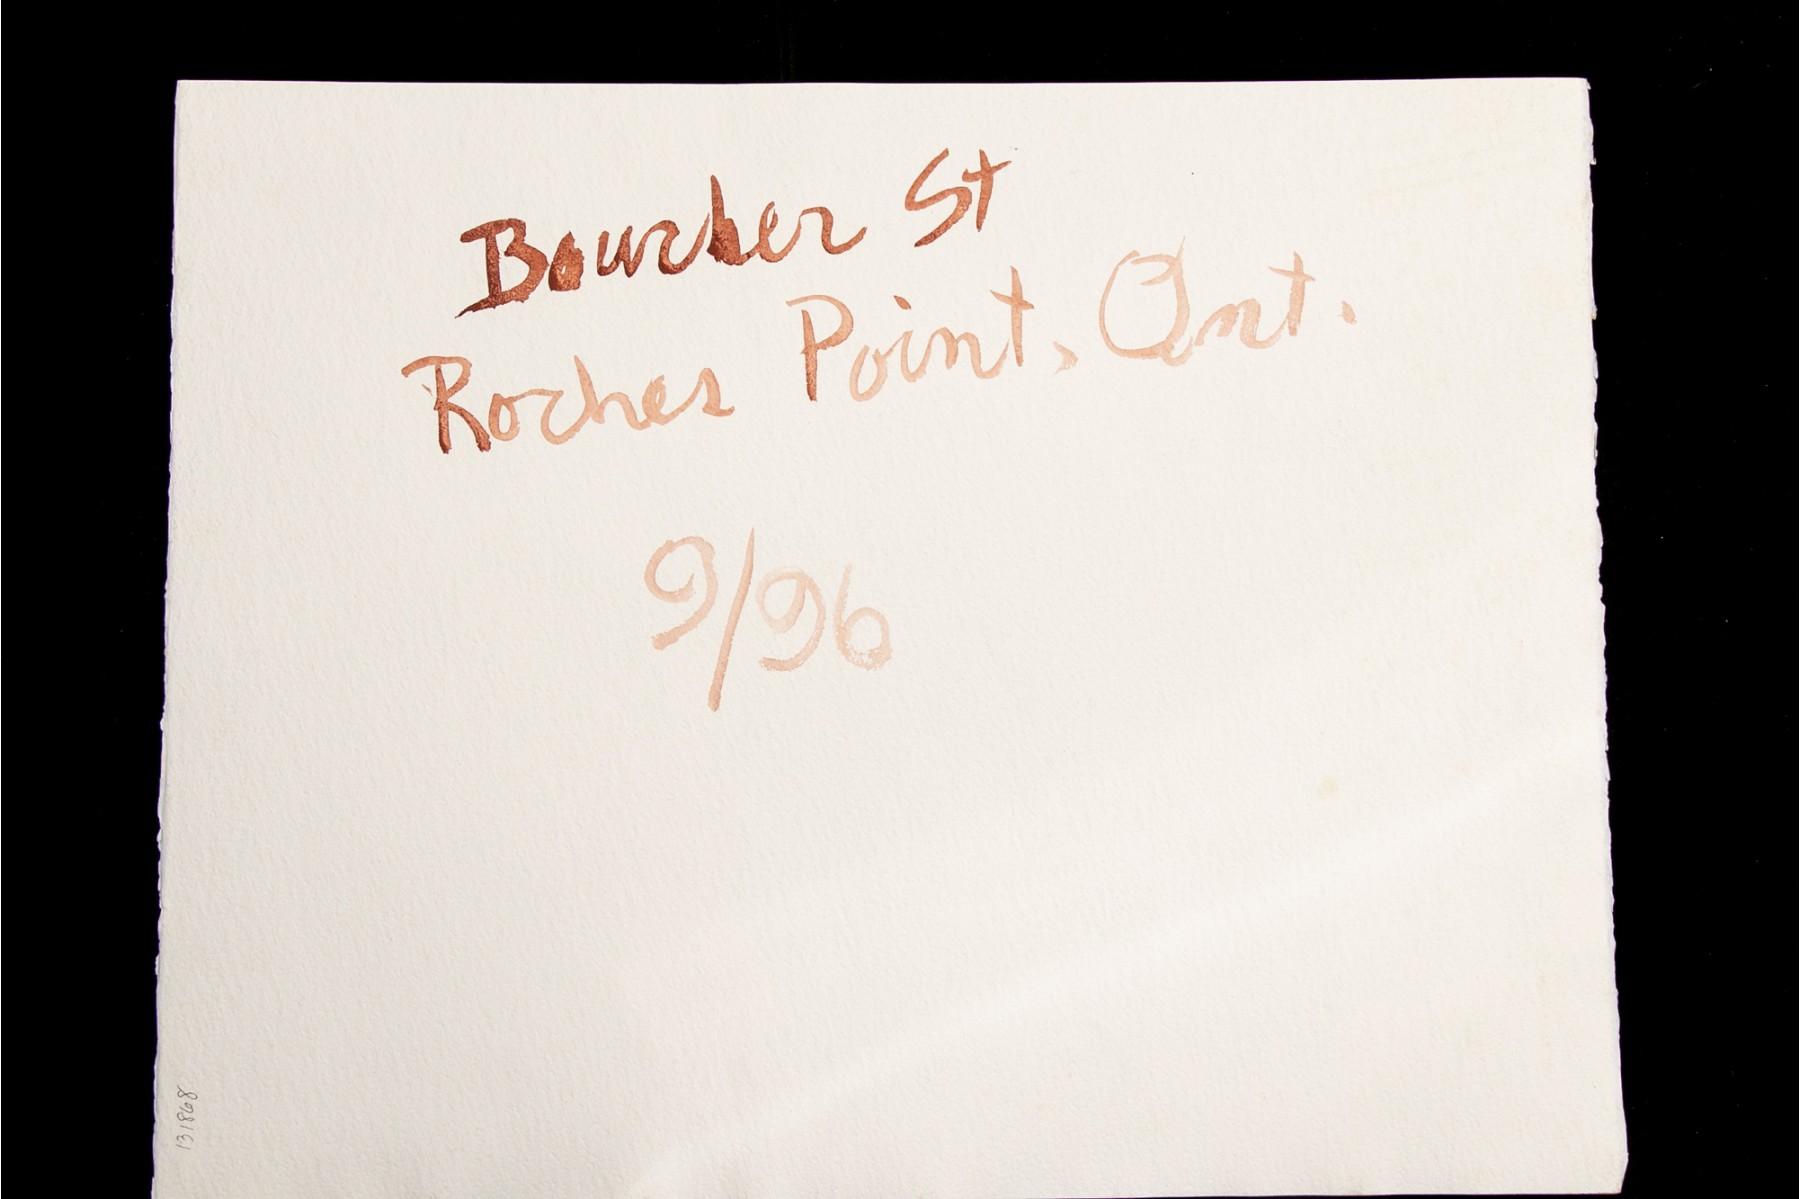 Bourcher St
Roches Point, Ont.
9/96
131868